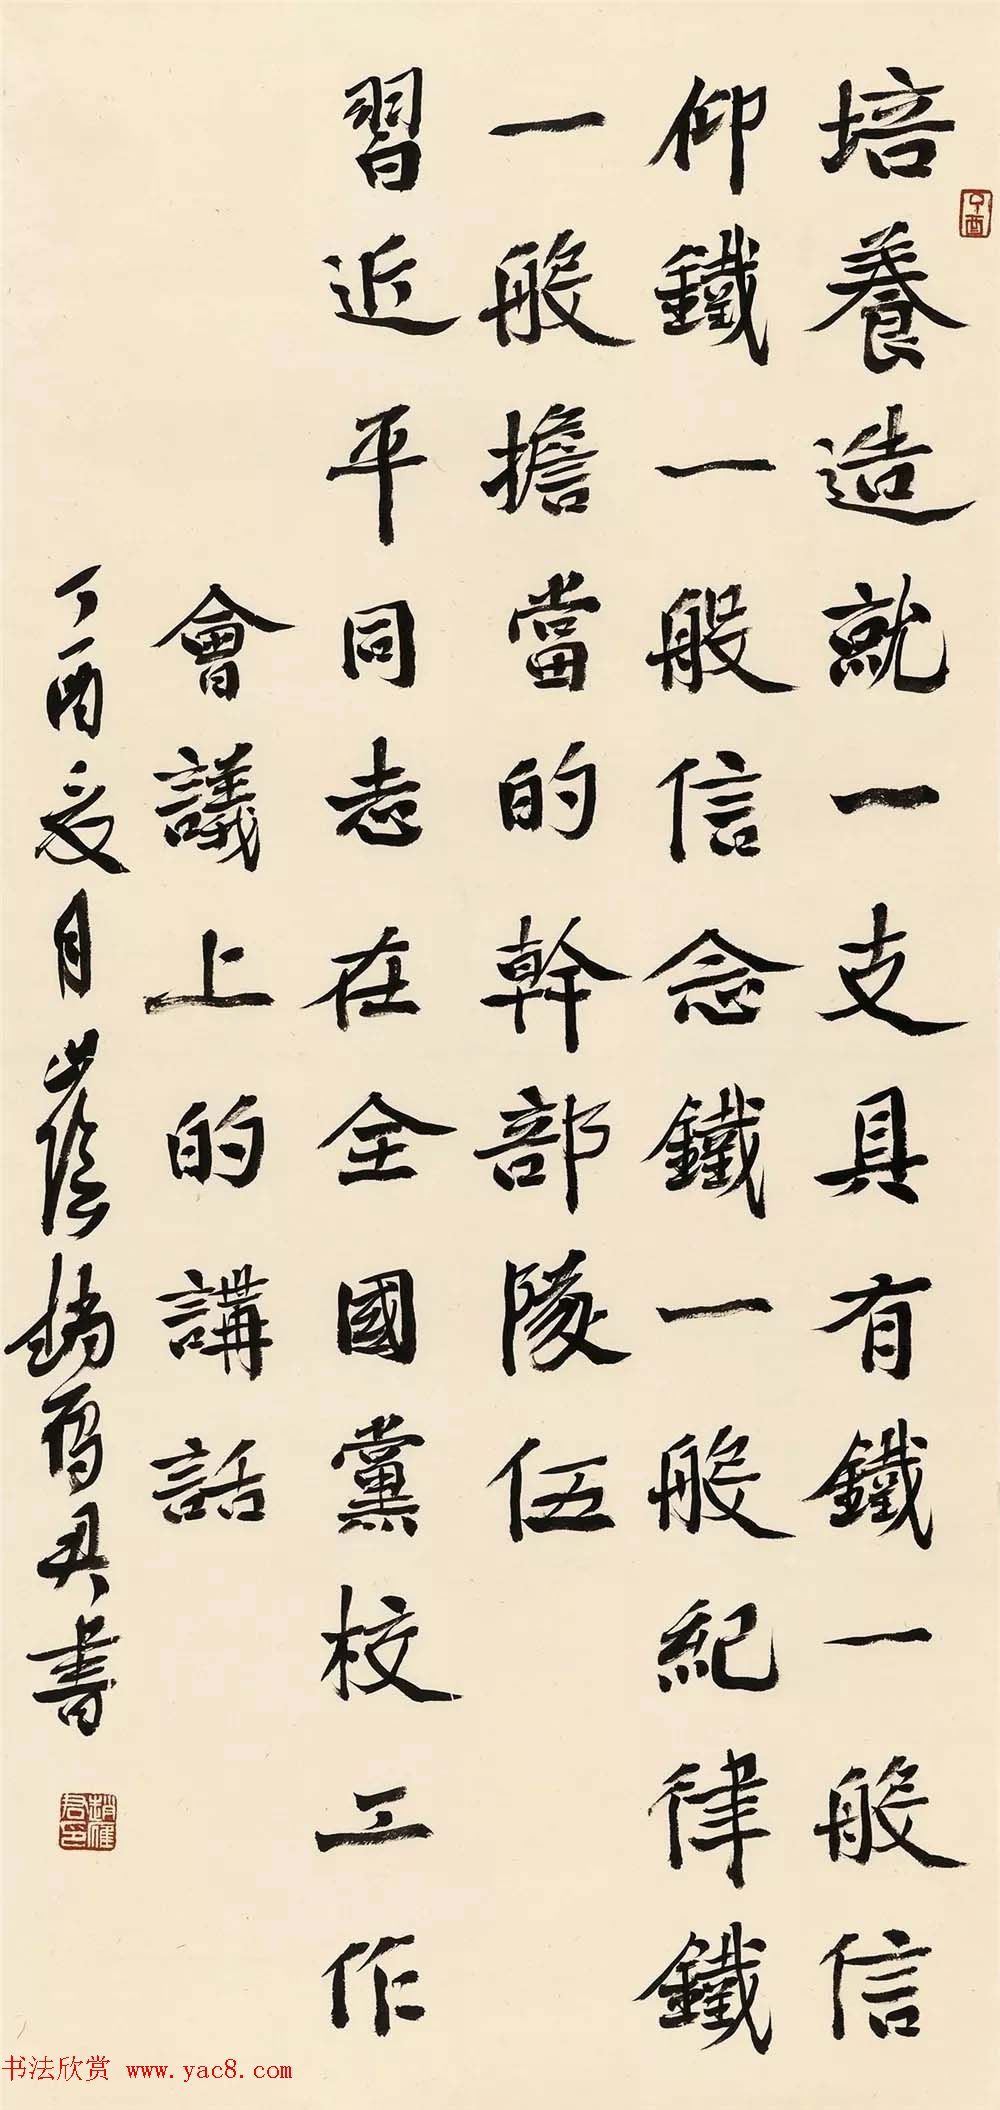 培養造就一支具有鐵一般信
仰鐵一般信念鐵一般紀律鐵
一般擔當的幹部隊伍
習近平同志在全國黨校工作
會議上的講話
丁酉夏月山陰趙雁君書
丁酉
趙雁君印
书法欣赏 www.yac8.com